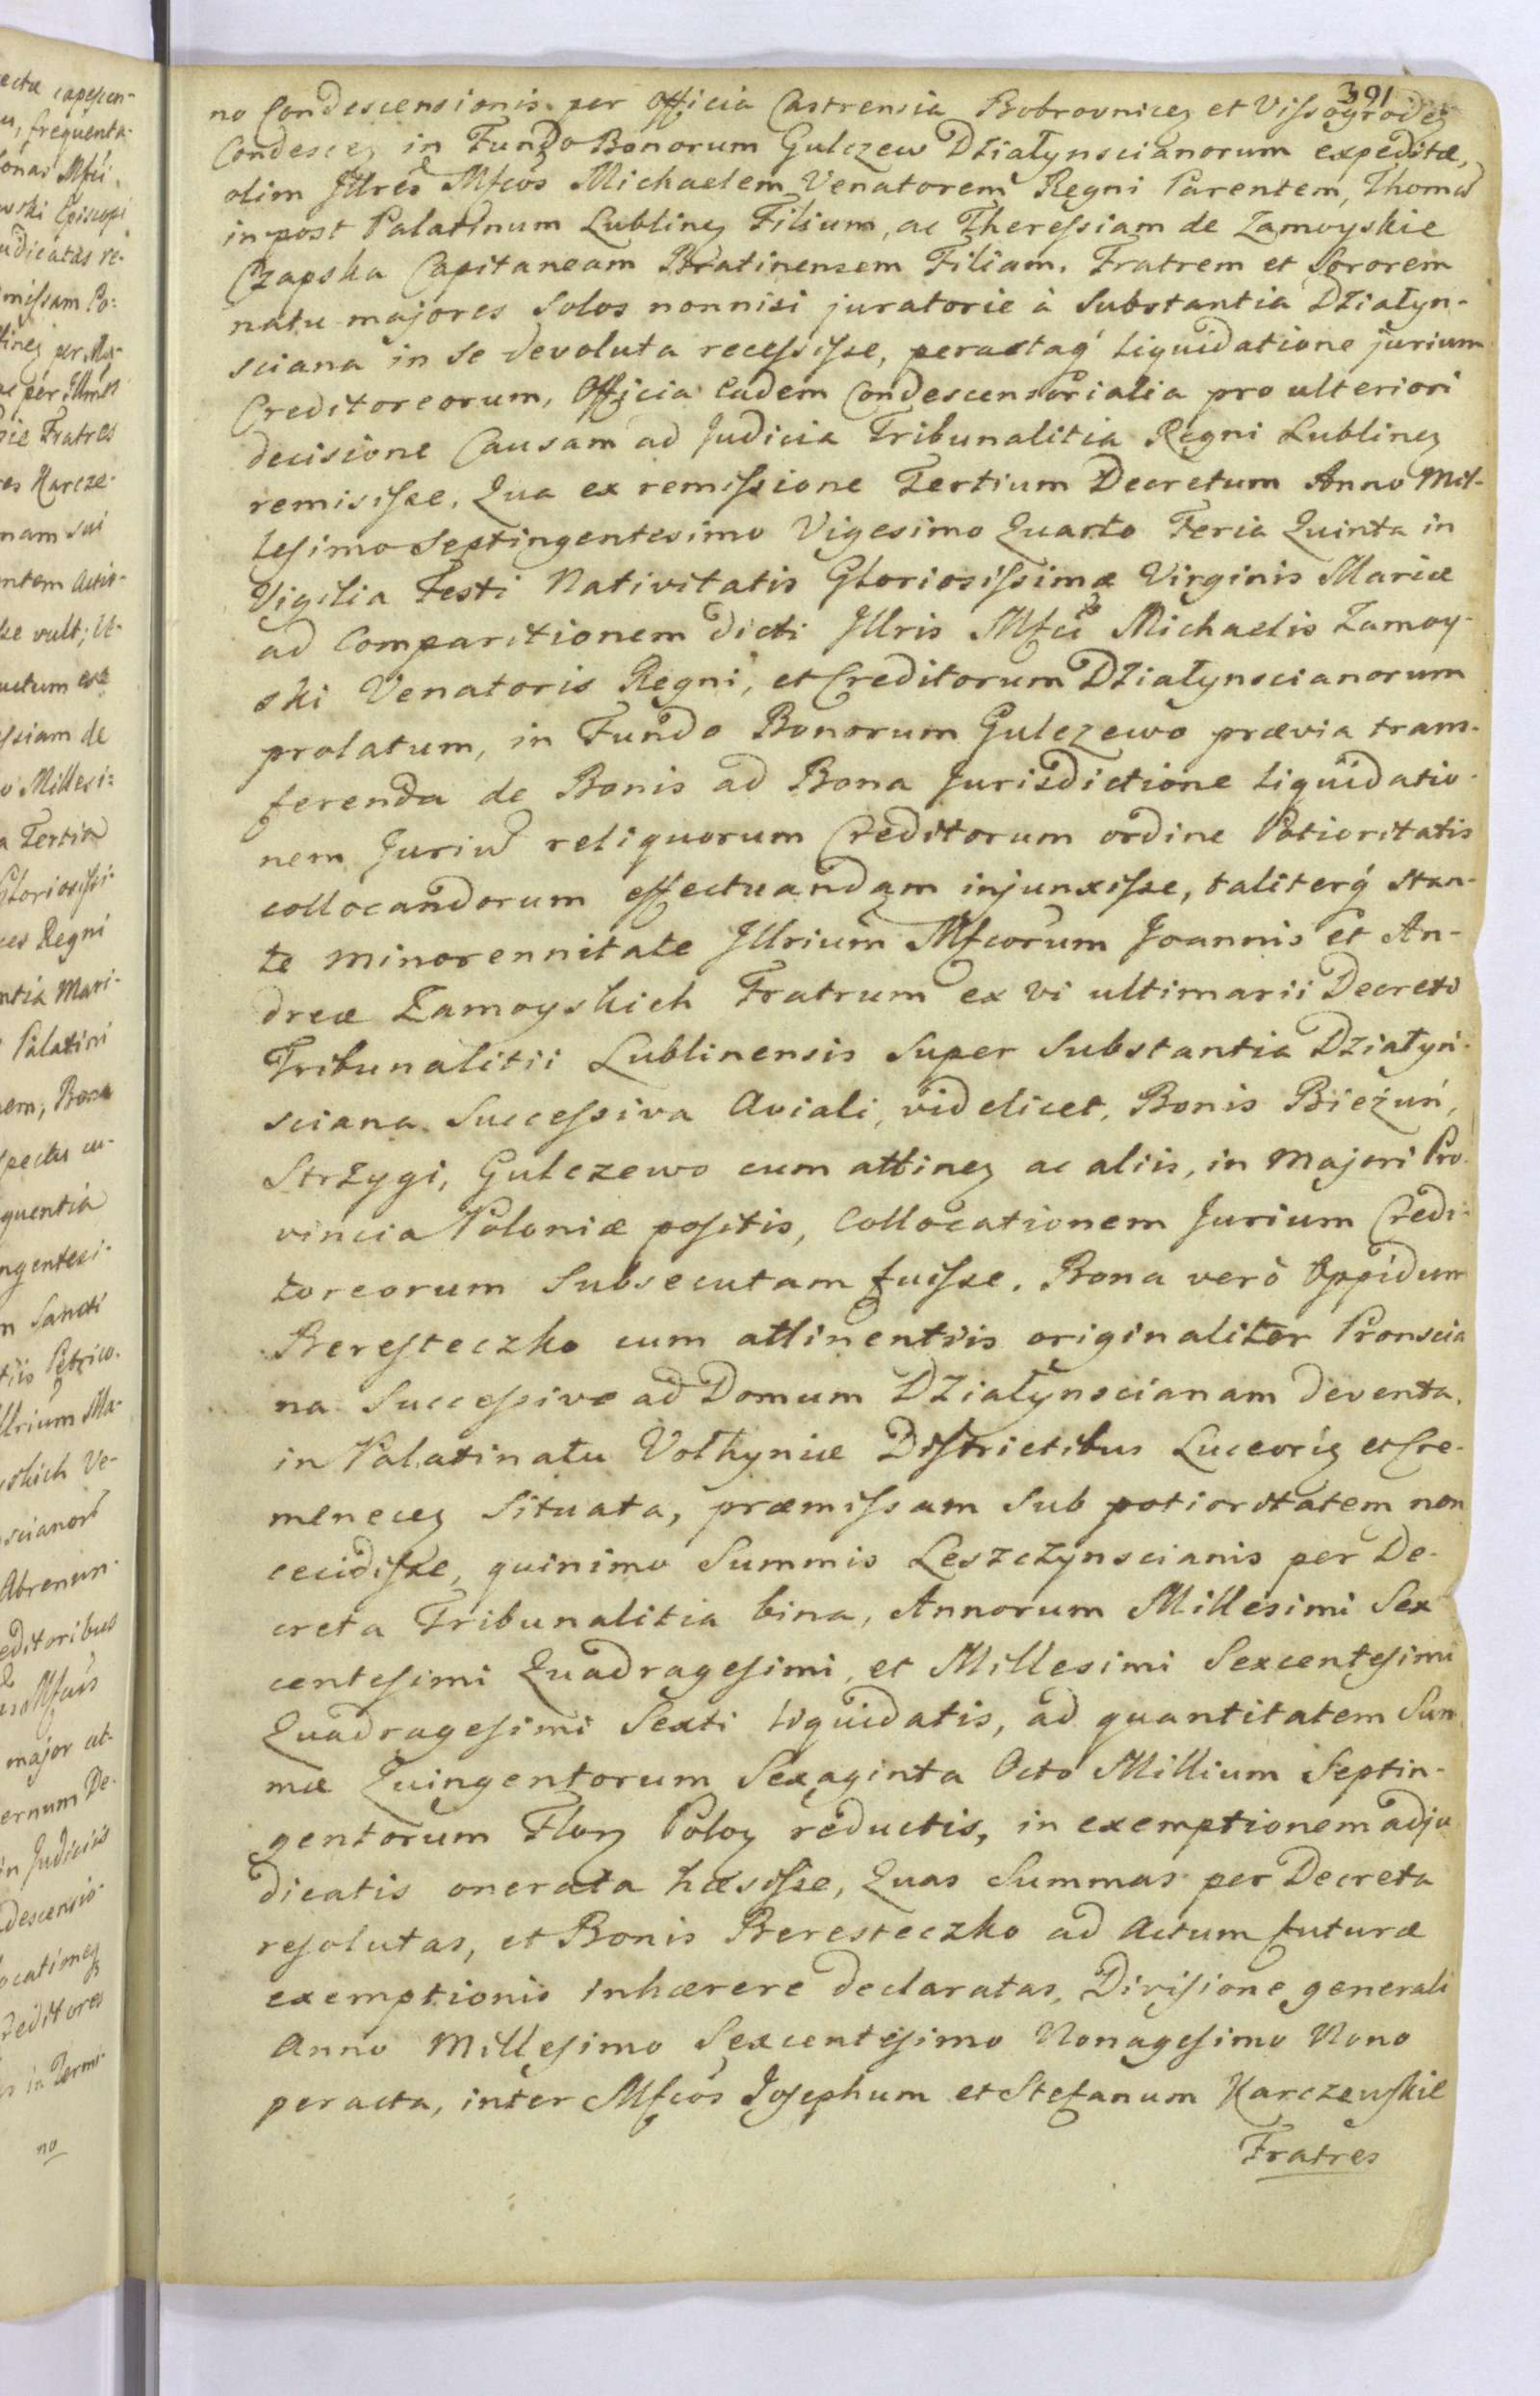 391
no Condescensionis per Officia Castrensia Bobrovnicen et Vissogroden
Condescen in Fundo Bonorum Gulczew Działynscianorum expeditæ,
olim Jllres Mfcos Michaelem Venatorem Regni Parentem, Thomā
in post Palatinum Lublinen Filium, ac Theressiam de Zamoyskie
Czapska Capitaneam Filiam, Fratrem et Sororem
natu majores Solos nonnisi juratorie à Substantia Działyn-
sciana in se devoluta recessisse, peractaq́ liquidatione jurium
Creditoreorum, Officia Eadem Condescensorialia pro ulteriori
decisione Causam ad Judicia Tribunalitia Regni Lublinen
remisisse. Qua ex remissione Tertium Decretum Anno Mil-
lesimo Septingentesimo Vigesimo Quarto Feria Quinta in
Vigilia Festi Nativitatis Gloriosissimæ Virginis Mariæ
ad Comparitionem dicti Jllris Mfci Michaelis Zamoy-
ski Venatoris Regni, et Creditorum Działynscianorum
prolatum, in Fundo Bonorum Gulczewo prævia trans-
ferenda de Bonis ad Bona Jurisdictione liquidatio-
nem Juriū reliquorum Creditorum ordine Potioritatis
collocandorum effectuandam injunxisse, taliterq́ stan-
te minorennitate Jllrium Mfcorum Joannis et An-
dreæ Zamoyskich Fratrum ex vi ultimarii Decreti
Tribunalitii Lublinensis Super Substantia Działyn-
sciana Successiva Aviali, videlicet, Bonis Bieżuń,
Strzygi, Gulczewo cum attinen ac aliis, in Majori Pro-
vincia Poloniæ positis, Collocationem Jurium Credi-
toreorum Subsecutam fuisse. Bona verò Oppidum
Beresteczko cum attinentiis originaliter Pronscia
na Successive ad Domum Działynscianam deventa,
in Palatinatu Volhyniæ Districtibus Luceorien et Cre-
menecen Situata, præmissam Sub potioritatem non
cecidisse, quinimo Summis Leszczynscianis per De-
creta Tribunalitia bina, Annorum Millesimi Sex
centesimi Quadragesimi, et Millesimi Sexcentesimi
Quadragesimi Sexti liquidatis, ad quantitatem Sum
mæ Quingentorum Sexaginta Octo Millium Septin-
gentorum Flon Polon reductis, in exemptionem adju
dicatis onerata hæsisse, Quas Summas per Decreta
resolutas, et Bonis Beresteczko ad Actum futuræ
exemptionis inhærere declaratas, Divisione generali
Anno Millesimo Sexcentesimo Nonagesimo Nono
peracta, inter Mfcos Josephum et Stefanum Karczewskie
Fratres